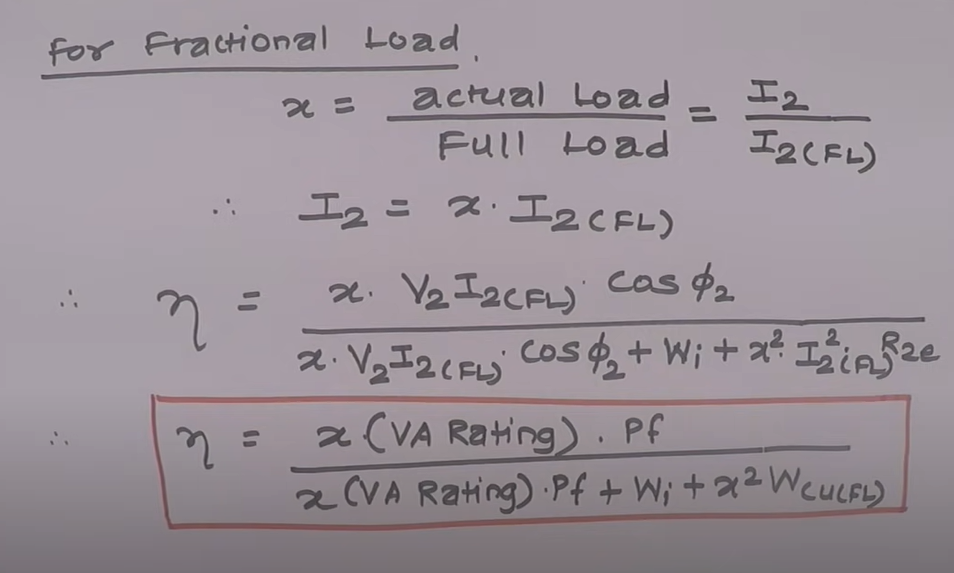 For Fractional Load.
x = actual Load / Full Load = I2 / I2(FL)
∴ I2 = x . I2(FL)
∴ η = x . V2 I2(FL) . cos ϕ2 / x . V2 I2(FL) . cos ϕ2 + Wi + x² . I2²(FL) . R2e
∴ η = x (VA Rating) . Pf / x (VA Rating) . Pf + Wi + x² Wcu(FL)